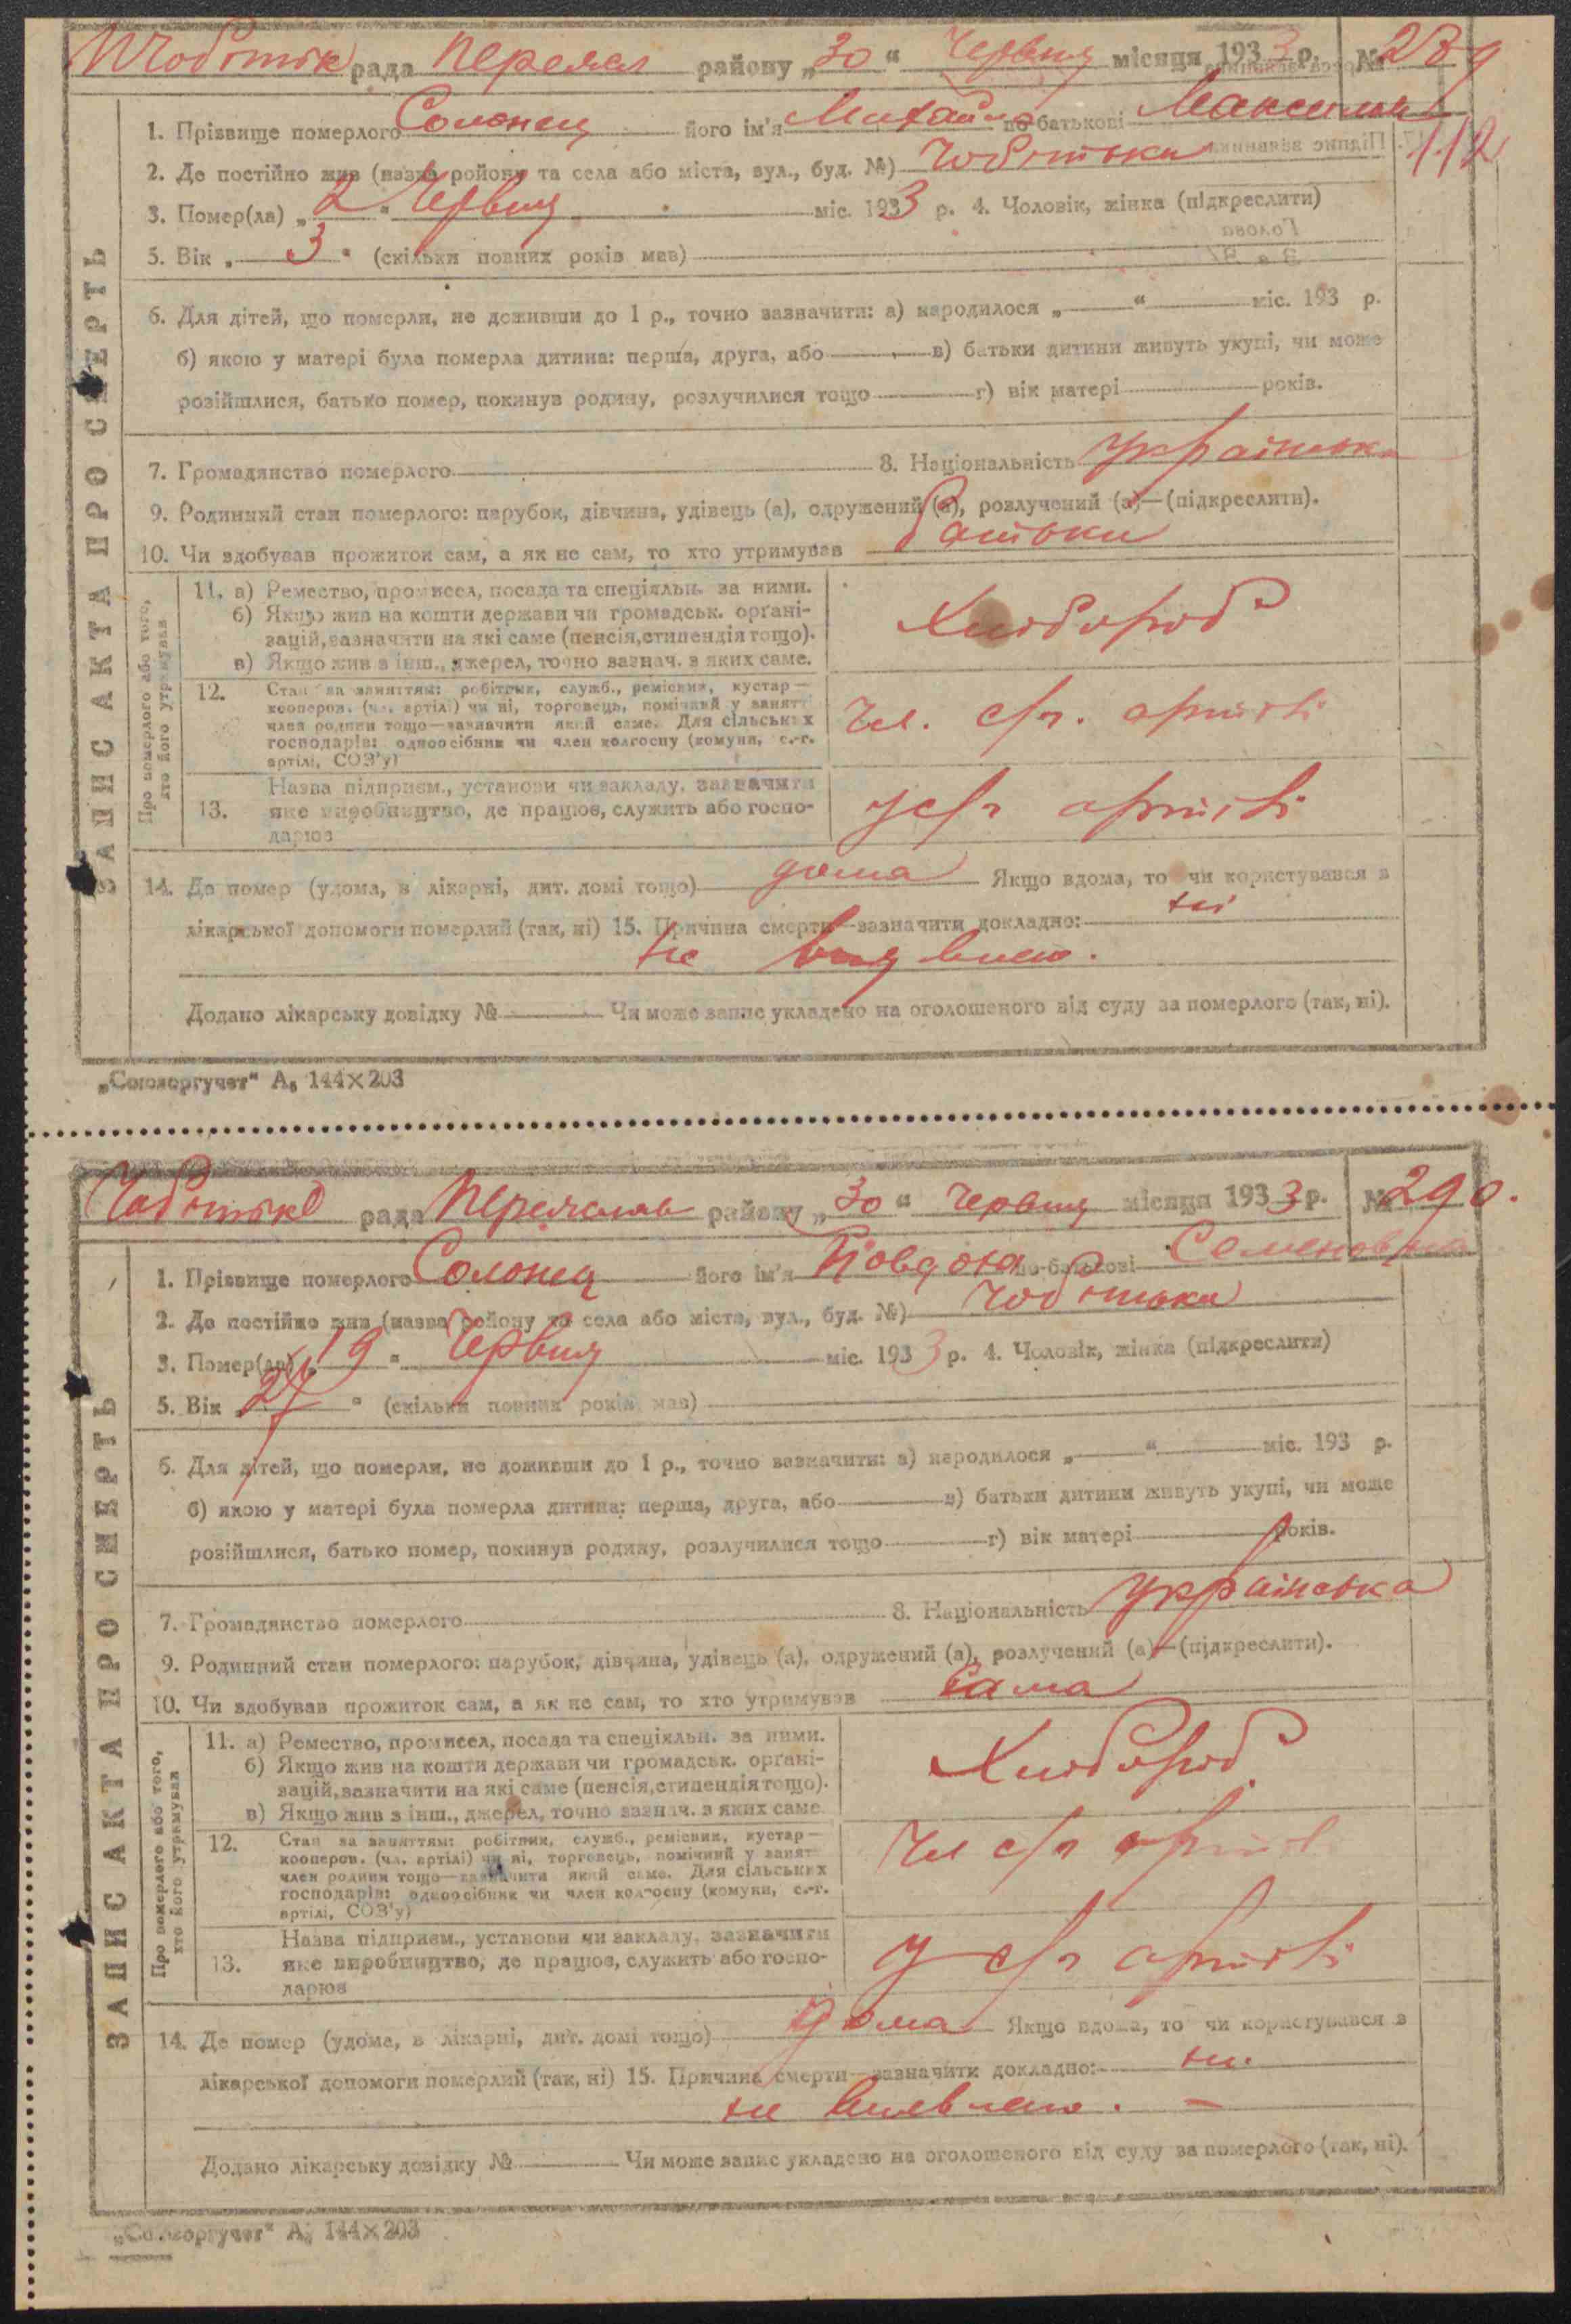 рада Перемал району „30" Червня місяця 1933 р. № 289
112
1. Прізвище померлого Солонец його ім'я Михайло по-батькові Максимов
2. Де постійно жив (назва району та села або міста, вул., буд. №) Чобітька
3. Помер(ла) „2" Червня міс. 1933 р. 4. Чоловік, жінка (підкреслити)
5. Вік „3" (скільки повних років мав)
6. Для дітей, що померли, не доживши до 1 р., точно зазначити: а) народилося „ " міс. 193 р.
б) якою у матері була померла дитина: перша, друга, або в) батьки дитини живуть укупі, чи може
розійшлися, батько помер, покинув родину, розлучилися тощо г) вік матері років.
7. Громадянство померлого 8. Національність українська
9. Родинний стан померлого: парубок, дівчина, удівець (а), одружений (а), розлучений (а)—(підкреслити).
10. Чи здобував прожиток сам, а як не сам, то хто утримував батьки
ЗАПИС АКТА ПРО СМЕРТЬ
Про померлого або того, хто його утримував
11. а) Ремество, промисел, посада та спеціяльн. за ними.
б) Якщо жив на кошти держави чи громадськ. органі-
зацій, зазначити на які саме (пенсія, стипендія тощо).
в) Якщо жив з інш., джерел, точно зазнач. з яких саме.
Хлібороб
12. Стан за заняттям: робітник, служб., ремісник, кустар—
кооперов. (чл. артілі) чи ні, торговець, помічний у занятт
член родини тощо—зазначити який саме. Для сільських
господарів: одноосібник чи член колгоспу (комуни, с.-г.
артілі, СОЗ'у)
Чл. с/г. артілі
13. Назва підприєм., установи чи закладу, зазначити
яке виробництво, де працює, служить або госпо-
дарює
у с/г артілі
14. Де помер (удома, в лікарні, дит. домі тощо) дома Якщо вдома, то чи користувався з
лікарської допомоги померлий (так, ні) 15. Причина смерти—зазначити докладно: ні
не
Додано лікарську довідку № Чи може запис укладено на оголошеного від суду за померлого (так, ні).
„Союзоргучет" А₅ 144×203
рада району „30" Червня місяця 1933 р. № 290.
1. Прізвище померлого Солонец його ім'я Йовдоха по-батькові Семеновна
2. Де постійно жив (назва району та села або міста, вул., буд. №) Чобітька
3. Помер(ла) „19" Червня міс. 1933 р. 4. Чоловік, жінка (підкреслити)
5. Вік „27" (скільки повних років мав)
6. Для дітей, що померли, не доживши до 1 р., точно зазначити: а) народилося „ " міс. 193 р.
б) якою у матері була померла дитина: перша, друга, або в) батьки дитини живуть укупі, чи може
розійшлися, батько помер, покинув родину, розлучилися тощо г) вік матері років.
7. Громадянство померлого 8. Національність українська
9. Родинний стан померлого: парубок, дівчина, удівець (а), одружений (а), розлучений (а)—(підкреслити).
10. Чи здобував прожиток сам, а як не сам, то хто утримував сама
ЗАПИС АКТА ПРО СМЕРТЬ
Про померлого або того, хто його утримував
11. а) Ремество, промисел, посада та спеціяльн. за ними.
б) Якщо жив на кошти держави чи громадськ. органі-
зацій, зазначити на які саме (пенсія, стипендія тощо).
в) Якщо жив з інш., джерел, точно зазнач. з яких саме
Хлібороб
12. Стан за заняттям: робітник, служб., ремісник, кустар—
кооперов. (чл. артілі) чи ні, торговець, помічний у занят
член родини тощо—зазначити який саме. Для сільських
господарів: одноосібник чи член колгоспу (комуни, с.-г.
артілі, СОЗ'у)
Чл с/г артілі
13. Назва підприєм., установи чи закладу, зазначити
яке виробництво, де працює, служить або госпо-
дарює
у с/г артілі
14. Де помер (удома, в лікарні, дит. домі тощо) дома Якщо вдома, то чи користувався з
лікарської допомоги померлий (так, ні) 15. Причина смерти—зазначити докладно: ні.
не виявлено.
Додано лікарську довідку № Чи може запис укладено на оголошеного від суду за померлого (так, ні).
„Союзоргучет" А₅ 144×203